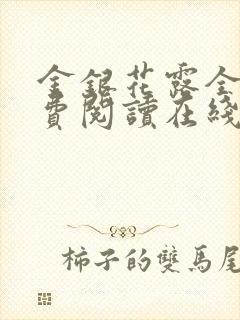 金銀花露全
費閱讀在綫
柿子的雙馬尾